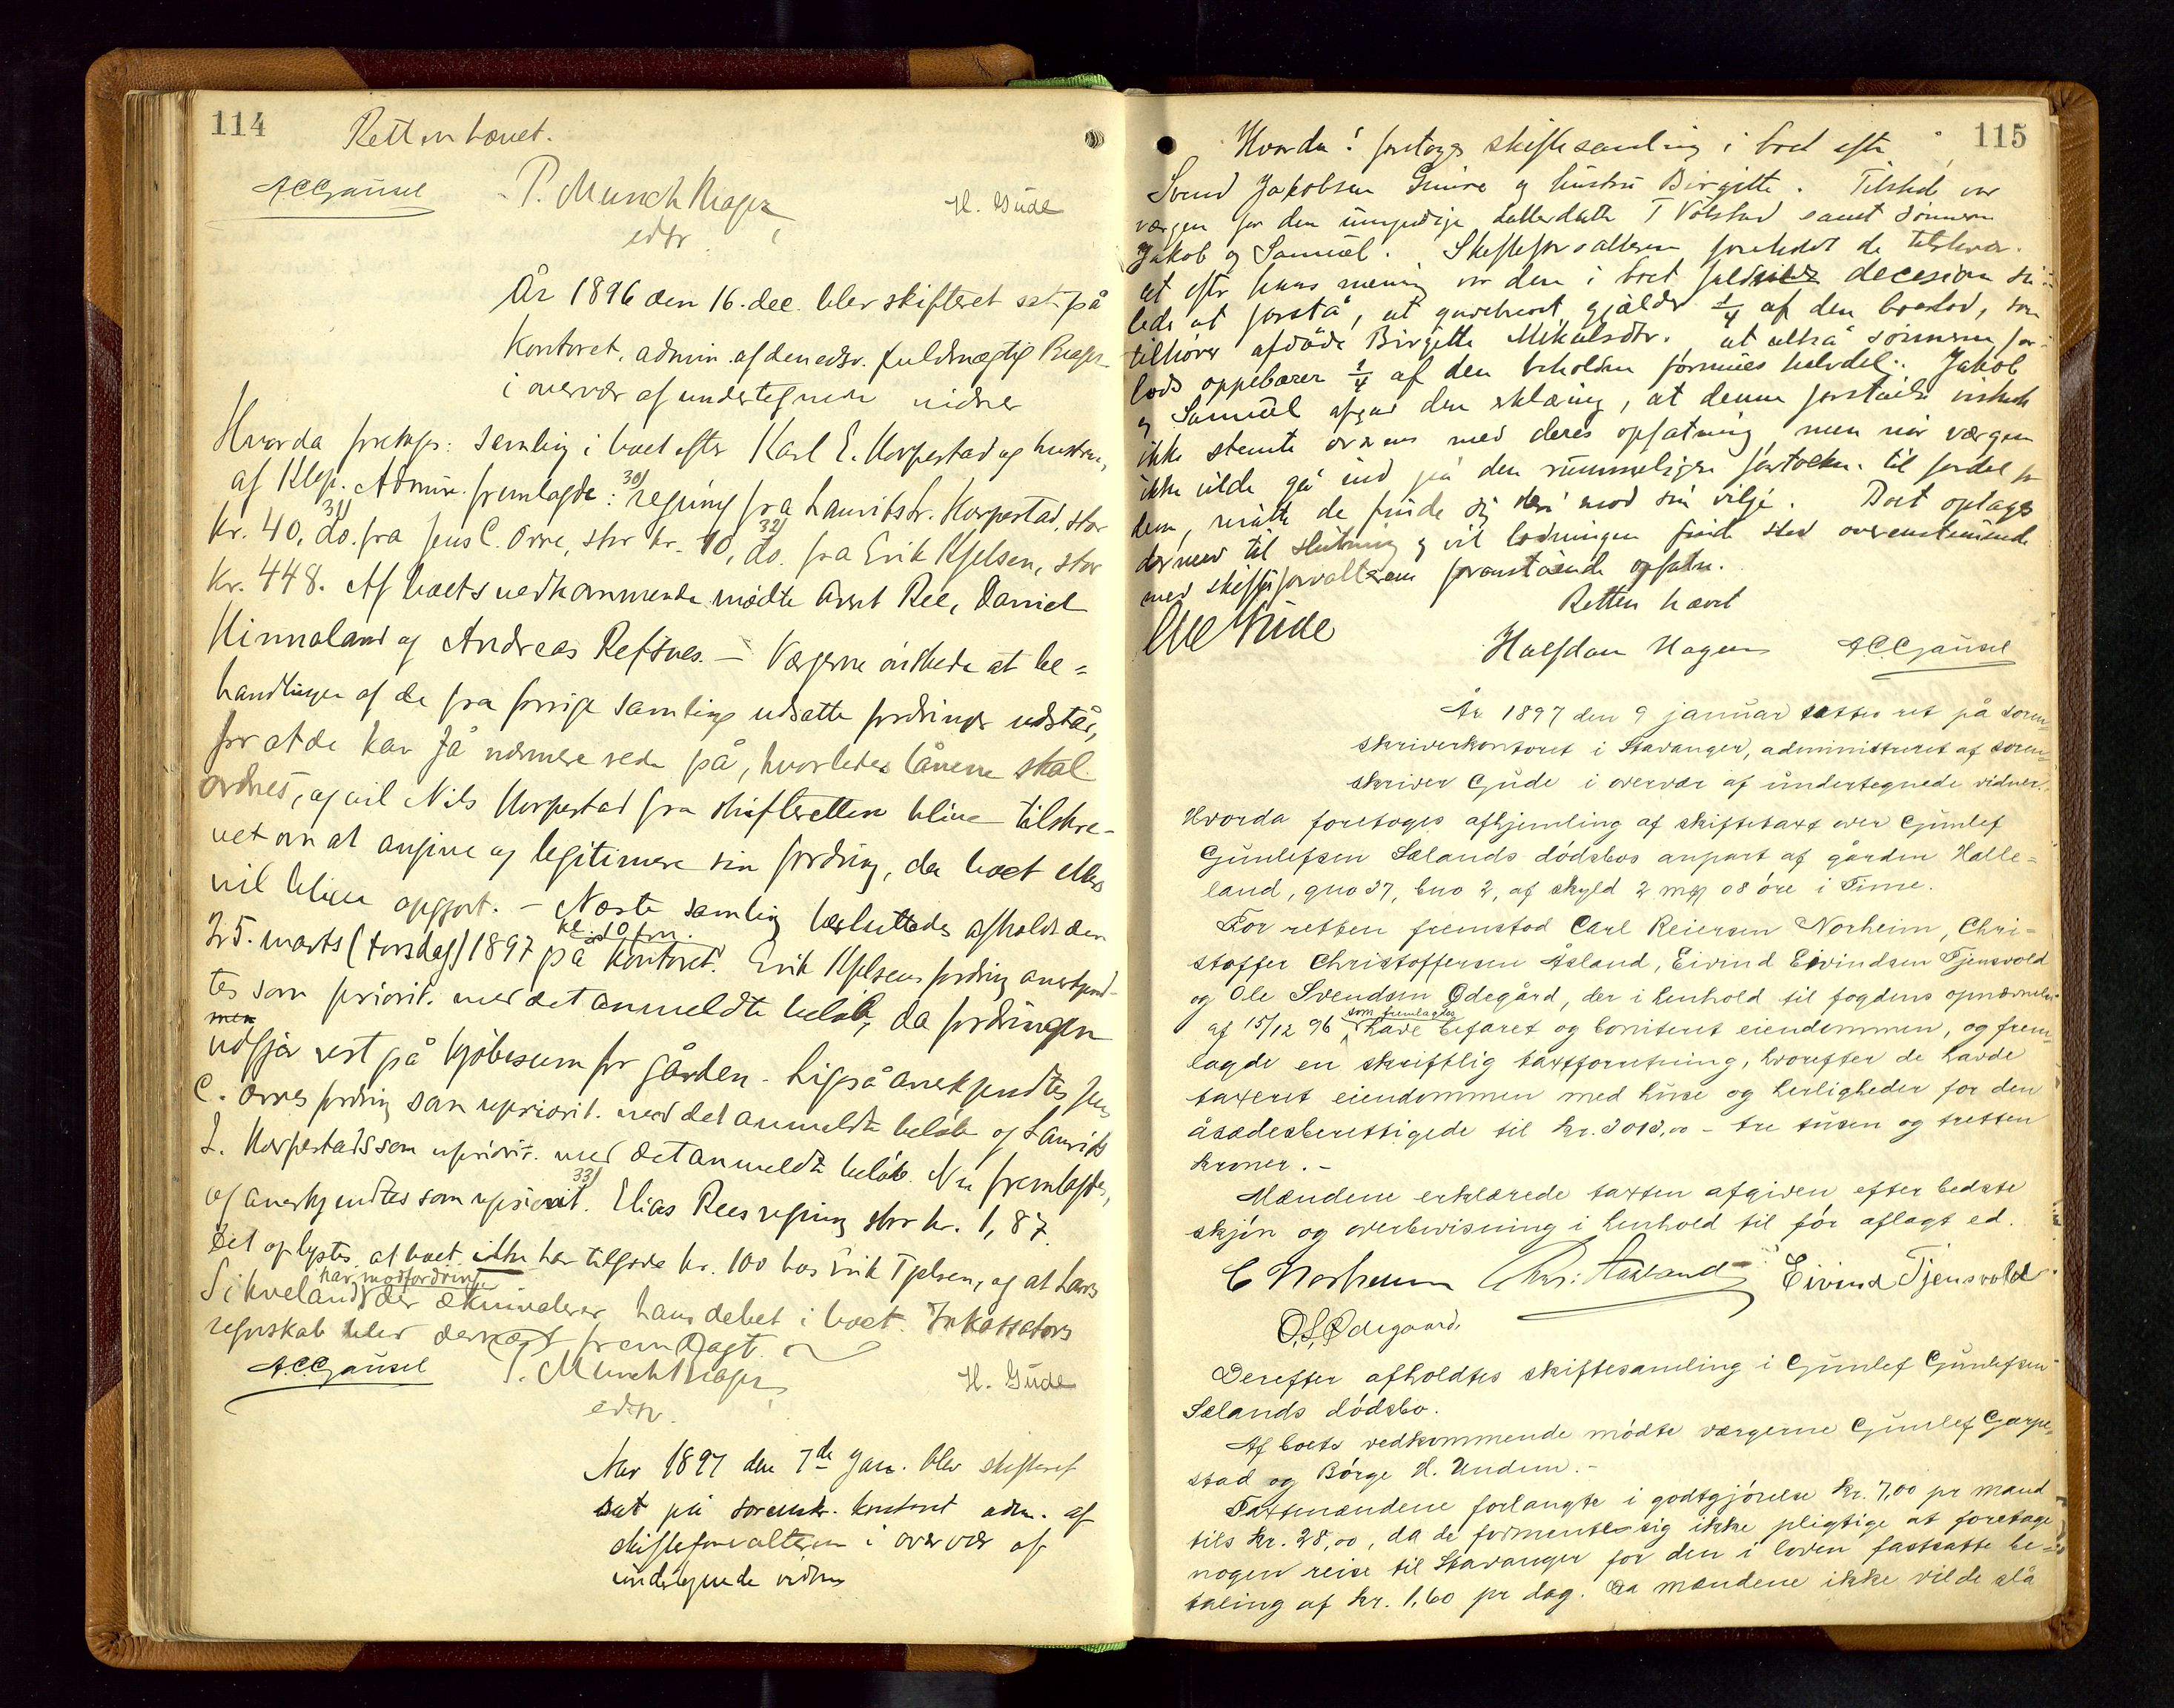 114
Retten hævet.
A.C. Gausel P. Munch Krager H. Gude
edsv.
År 1896 den 16. dec. blev skifteret sat på
Kontoret, admin. af den edsv. fuldmægtig Krager
i overvær af undertegnede vidner
Hvorda foretoges: samling i boet efter Karl E. Horpestad og hustru,
af Klep. Admin. fremlagde: 30) regning fra Lauritsr. Horpestad, stor
kr. 40, 31) do. fra Jens C. Orre, stor kr. 10, 32) do. fra Erik Kjelsen, stor
kr. 448. Af boets vedkommende mødte Arnt Ree, Daniel
Hinnaland og Andreas Refsnes. – Værgerne ønskede at be=
handlingen af de fra forrige samling udsatte fordringer udstår,
for at de kan få nærmere rede på, hvorledes lånene skal
ordnes, og vil Nils Horpestad fra skifteretten blive tilskre-
vet om at angive og legitimere sin fordring, da boet ellers
vil blive opgjort. – Næste samling besluttedes afholdt den
25. marts (torsdag) 1897 kl. 10 fm. på kontoret. Erik Kjelsens fordring anerkjend-
tes som priorit. med det anmeldte beløb, da fordringen
men
udgjør rest på kjøbesum for gården. Ligeså anerkjendtes Jens
C. Orres fordring som upriorit. med det anmeldte beløb og Laurits
L. Horpestads som upriorit. med det anmeldte beløb. Nu fremlagdes,
og anerkjendtes som upriorit. 33) Elias Rees regning stor kr. 1,87.
Det oplystes at boet ikke har tilgode kr. 100 hos Erik Tjelsen, og at Lars
Sikveland har modfordring der ækvivalerer hans debet i boet. Inkassators
regnskab blev dernæst fremlagt.
A.C. Gausel P. Munch Krager H. Gude
edsv.
Aar 1897 den 7de Jan. blev skifteret
sat på sorensk. kontoret adm. af
skifteforvalteren i overvær af
undertegnede vidner
115
Hvorda! foretoges skiftesamling i boet efter
Svend Jakobsen og hustru Birgitte. Tilstede var
værgen for den umyndige datterdatter T Volstad samt sønnerne
Jakob og Samuel. Skifteforvalteren foreholdt de tilstedevær.
at efter hans mening var den i boet faldne decision så-
ledes at forstå, at gavebrevet gjælder 1/4 af den boeslod, som
tilhører afdøde Birgitte Mikalsdtr. at altså sønnerne for-
lods oppebærer 1/4 af den beholdne formues halvdel. Jakob
og Samuel afgav den erklæring, at denne forståelse vistnok
ikke stemte overens med deres opfatning, men når værgen
ikke vilde gå ind på den rummeligere fortolkn. til fordel for
dem, måtte de finde sig deri mod sin vilje. Boet optages
dermed til slutning og vil lodningen finde sted overenstemmende
med skifteforvalterens foranstående opfatn.
Retten hævet
Gude
Halfdan Hagen A.C. Gausel
År 1897 den 9 januar sattes ret på soren-
skriverkontoret i Stavanger, administreret af soren-
skriver Gude i overvær af undertegnede vidner.
Hvorda foretoges afhjemling af skiftetaxt over Gunlef
Gunlefsen Sælands dødsbos anpart af gården Halle=
land, gno 37, bno 2, af skyld 2 mrk 08 øre i Time.
For retten fremstod Carl Reiersen Norheim, Chri-
stoffer Christoffersen Åsland, Eivind Eivindsen Tjensvold
og Ole Svendsen Ødegård, der i henhold til fogdens opnævnelse
af 15/12 96 som fremlagdes havde befaret og boniteret eiendommen, og frem-
lagde en skriftlig taxtforretning, hvorefter de havde
taxeret eiendommen med huse og herligheder for den
åsædesberettigede til kr. 3013,00 – tre tusen og tretten
kroner. –
Mændene erklærede taxten afgiven efter bedste
skjøn og overbevisning i henhold til før aflagt ed.
C Norheim Chr: Aasland Eivind Tjensvold
O.S. Ødegaard.
Derefter afholdtes skiftesamling i Gunlef Gunlefsen
Sælands dødsbo.
Af boets vedkommende mødte værgerne Gunlef Garpe-
stad og Børge H. Undem. –
Taxtmændene forlangte i godtgjørelse kr. 7,00 pr mand
tils kr. 28,00, da de formente sig ikke pligtige at foretage
nogen reise til Stavanger for den i loven fastsatte be-
taling af kr. 1,60 pr dag. Da mændene ikke vilde slå